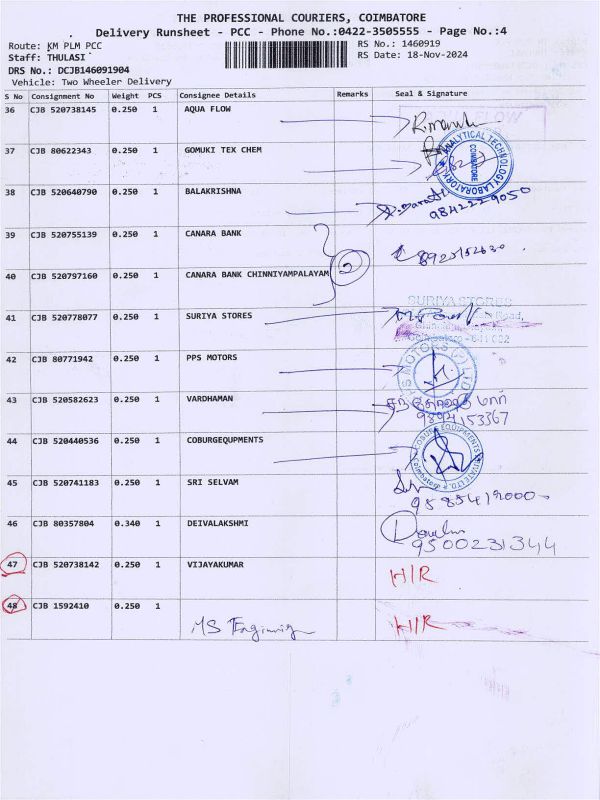 THE PROFESSIONAL COURIERS, COIMBATORE
Delivery Runsheet - PCC - Phone No.:0422-3505555 - Page No.:4
Route: KM PLM PCC RS No.: 1460919
Staff: THULASI RS Date: 18-Nov-2024
DRS No.: DCJB146091904
Vehicle: Two Wheeler Delivery
S No Consignment No Weight PCS Consignee Details Remarks Seal & Signature
36 CJB 520738145 0.250 1 AQUA FLOW FLOW
37 CJB 80622343 0.250 1 GOMUKI TEX CHEM ANALYTICAL TECHNOLOGY LABORATORY COIMBATORE
38 CJB 520640790 0.250 1 BALAKRISHNA
9842229050
39 CJB 520755139 0.250 1 CANARA BANK
2
40 CJB 520797160 0.250 1 CANARA BANK CHINNIYAMPALAYAM
41 CJB 520778077 0.250 1 SURIYA STORES SURIYA STORES
Road,
42 CJB 80771942 0.250 1 PPS MOTORS MOTORS
43 CJB 520582623 0.250 1 VARDHAMAN
44 CJB 520440536 0.250 1 COBURGEQUPMENTS EQUIPMENTS
45 CJB 520741183 0.250 1 SRI SELVAM
46 CJB 80357804 0.340 1 DEIVALAKSHMI
9500231344
47 CJB 520738142 0.250 1 VIJAYAKUMAR H/R
48 CJB 1592410 0.250 1 H/R
MS